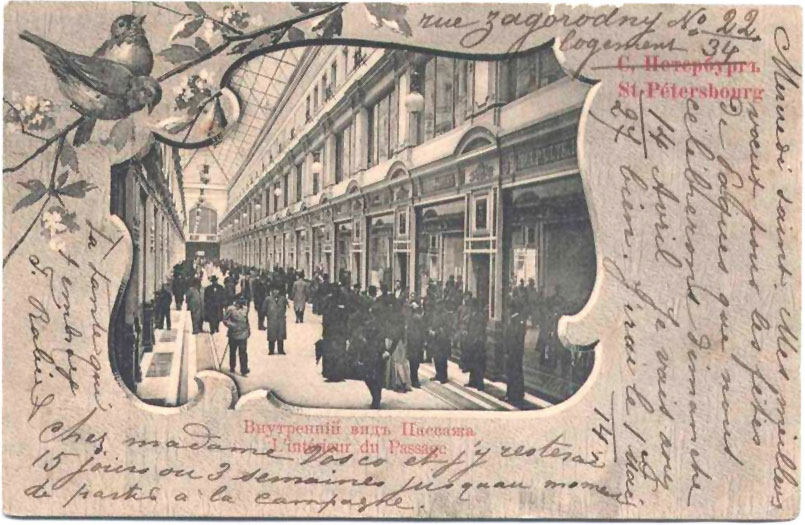 rue zagorodny No 22
logement 34
С. Петербургъ
St-Pétersbourg
Mercredi saint. Mes meilleurs
voeux pour les fêtes
de Pâques que nous
célèbrerons dimanche
14/27 Avril. Je vais assez
bien. J'irai le 1/14 Mai
Внутренній видъ Пассажа
L'intérieur du Passage
chez madame Cosco et j'y resterai
15 jours ou 3 semaines jusquau moment
de partir à la campagne.
Ta tante qui
t'embrasse